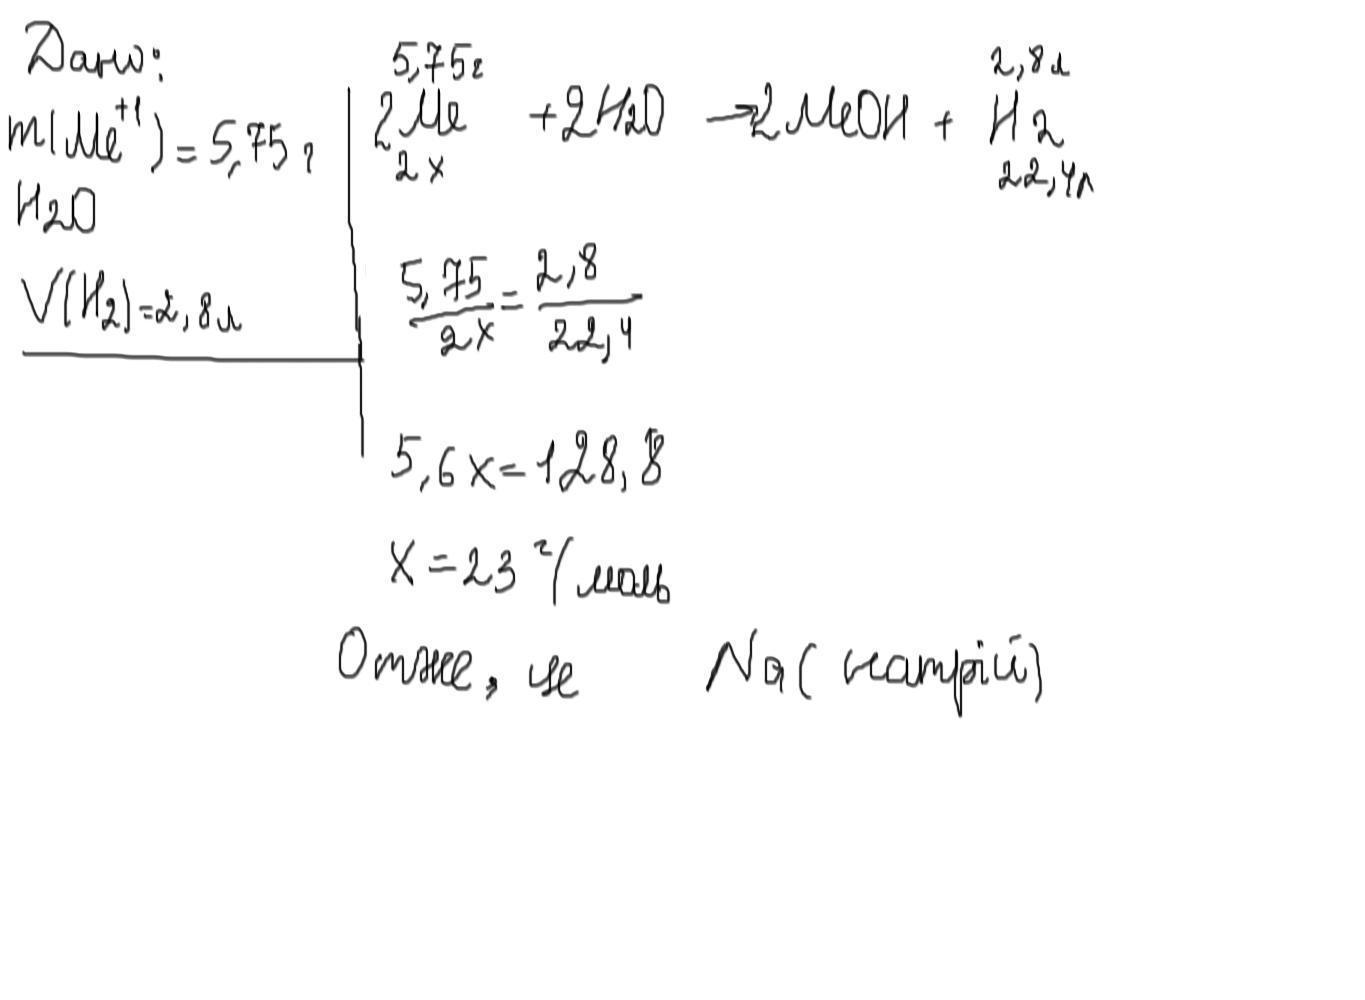 Дано:
m(Me⁺¹) = 5,75 г
H2O
V(H2) = 2,8 л
5,75 г 2,8 л
2Me + 2H2O → 2MeOH + H2
2x 22,4 л
5,75/2x = 2,8/22,4
5,6x = 128,8
x = 23 г/моль
Отже, це Na (натрій)